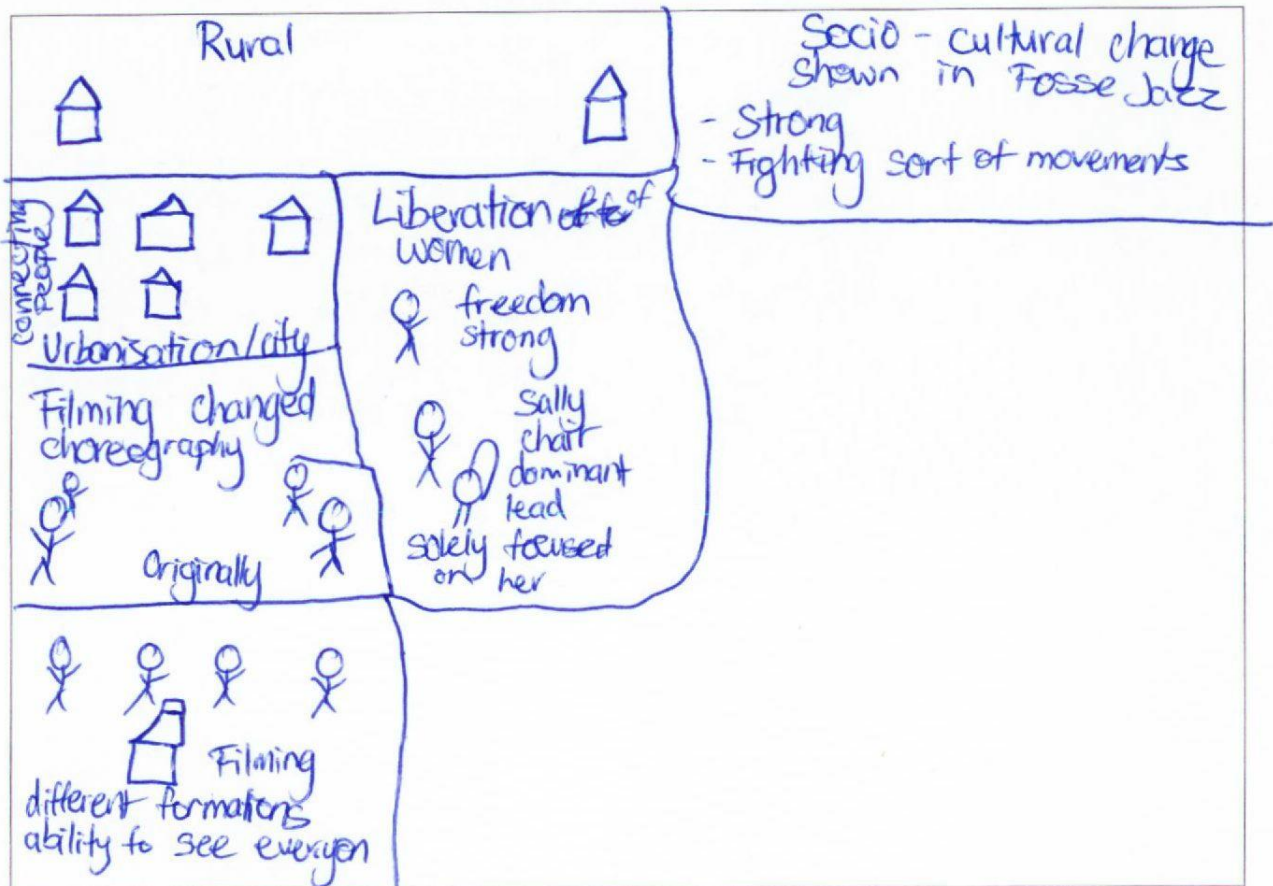 Rural
Socio - cultural change
shown in Fosse Jazz
- Strong
- Fighting sort of movements
connecting
people
Urbanisation/city
Liberation of
women
freedom
strong
Sally
chart
dominant
lead
solely focused
on her
Filming changed
choreography
Originally
Filming
different formations
ability to see everyon